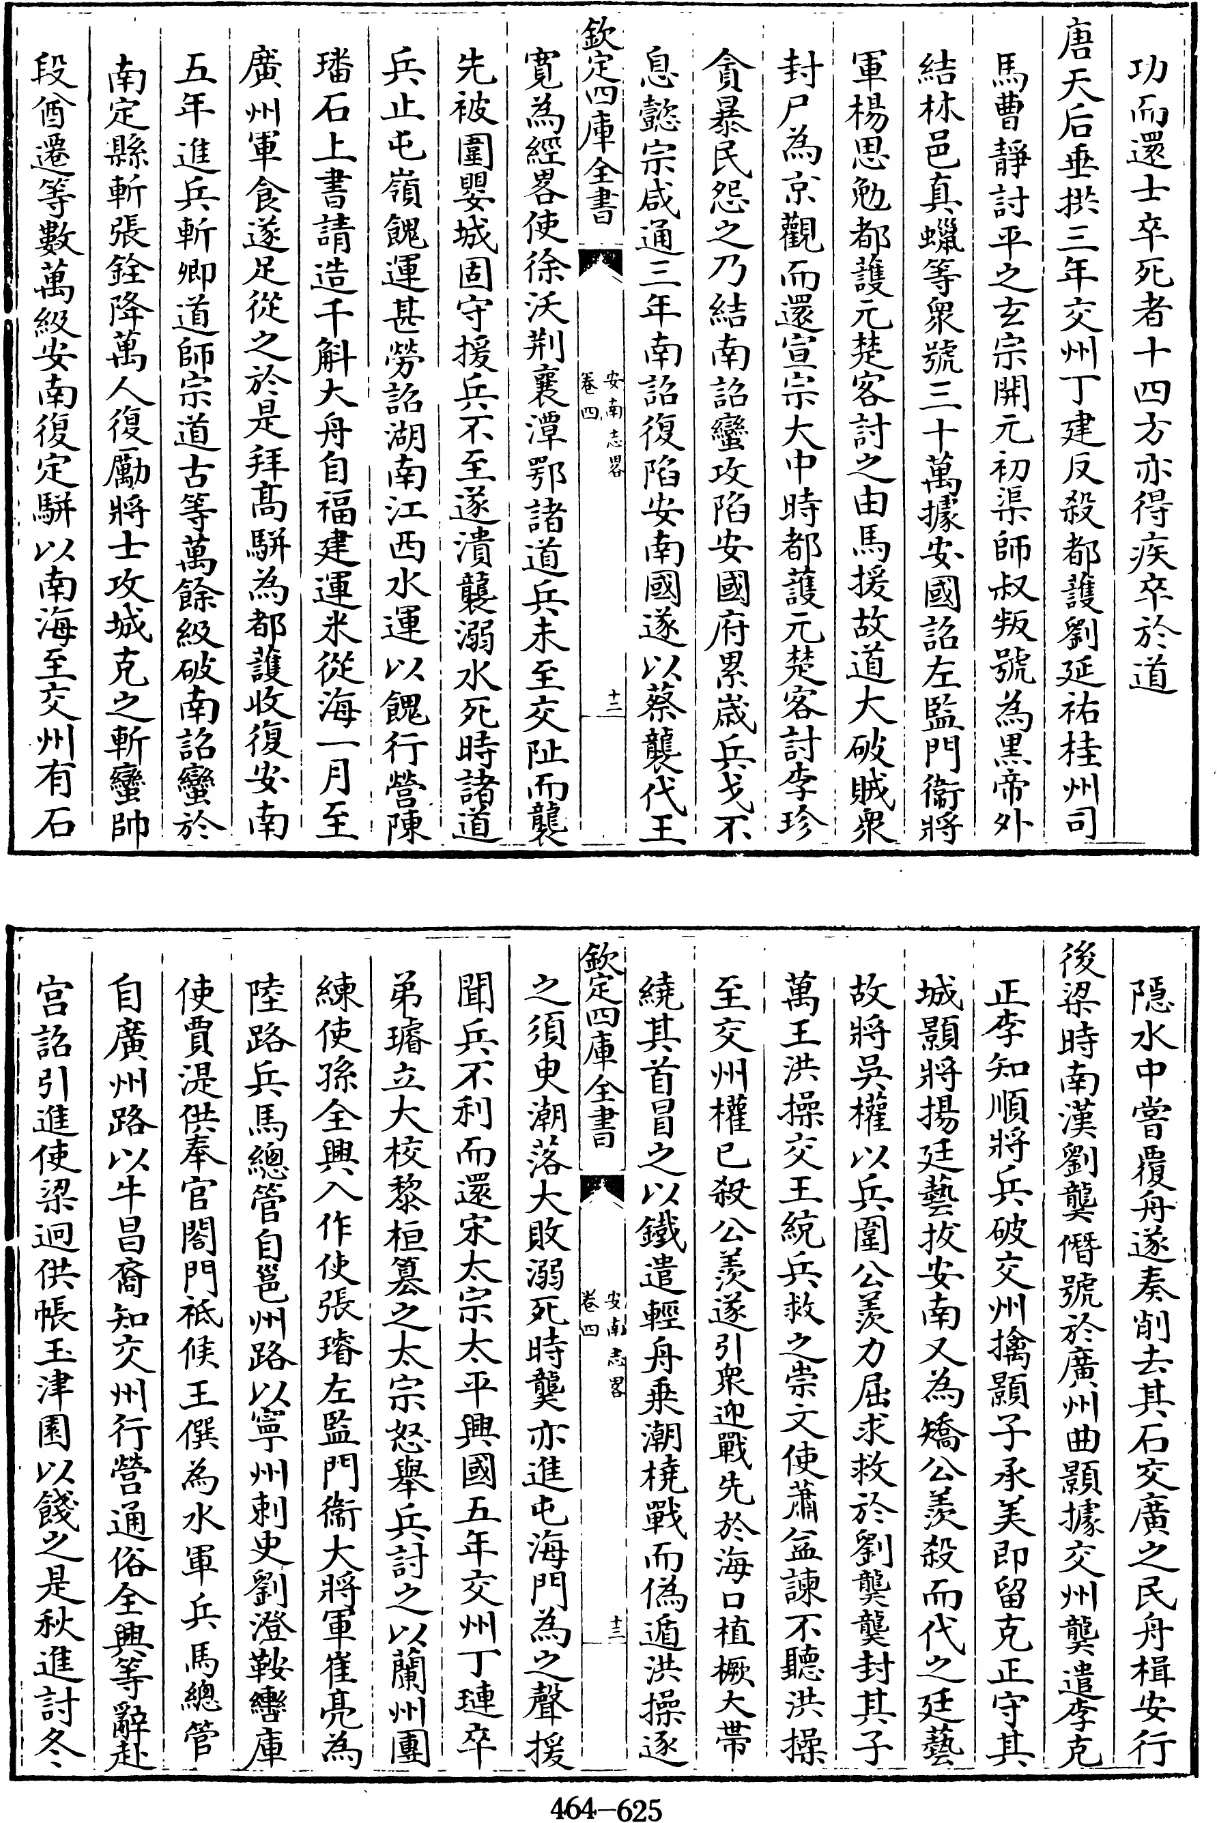 功而還士卒死者十四方亦得疾卒於道
唐天后垂拱三年交州丁建反殺都護劉延祐桂州司
馬曹靜討平之玄宗開元初渠師叔叛號為黒帝外
結林邑真蠟等衆號三十萬據安國詔左監門衞將
軍楊思勉都護元楚客討之由馬援故道大破賊衆
封尸為京觀而還宣宗大中時都護元楚客討李珍
貪暴民怨之乃結南詔蠻攻陷安國府累歲兵戈不
息懿宗咸通三年南詔復陷安南國遂以蔡襲代王
欽定四庫全書
安南志畧
卷四
十二
寛為經畧使徐沃荆襄潭鄂諸道兵未至交阯而襲
先被圍嬰城固守援兵不至遂潰襲溺水死時諸道
兵止屯嶺餽運甚勞詔湖南江西水運以餽行營陳
璠石上書請造千斛大舟自福建運米從海一月至
廣州軍食遂足從之於是拜高駢為都護收復安南
五年進兵斬卿道師宗道古等萬餘級破南詔蠻於
南定縣斬張銓降萬人復勵將士攻城克之斬蠻帥
段酋遷等數萬級安南復定駢以南海至交州有石
隱水中嘗覆舟遂奏削去其石交廣之民舟楫安行
後梁時南漢劉龑僭號於廣州曲顥據交州龑遣李克
正李知順將兵破交州擒顥子承美即留克正守其
城顥將揚廷藝拔安南又為矯公羨殺而代之廷藝
故將吳權以兵圍公羨力屈求救於劉龑龑封其子
萬王洪操交王統兵救之崇文使蕭益諫不聽洪操
至交州權已殺公羨遂引衆迎戰先於海口植橛大帶
繞其首冒之以鐵遣輕舟乗潮橈戰而偽遁洪操遂
欽定四庫全書
安南志畧
卷四
十三
之須臾潮落大敗溺死時龑亦進屯海門為之聲援
聞兵不利而還宋太宗太平興國五年交州丁璉卒
弟璿立大校黎桓篡之太宗怒舉兵討之以蘭州團
練使孫全興入作使張璿左監門衞大將軍崔亮為
陸路兵馬總管自邕州路以寧州刺史劉澄鞍轡庫
使賈湜供奉官閤門祗候王僎為水軍兵馬總管
自廣州路以牛昌裔知交州行營通俗全興等辭赴
宫詔引進使梁迥供帳玉津園以餞之是秋進討冬
464-625